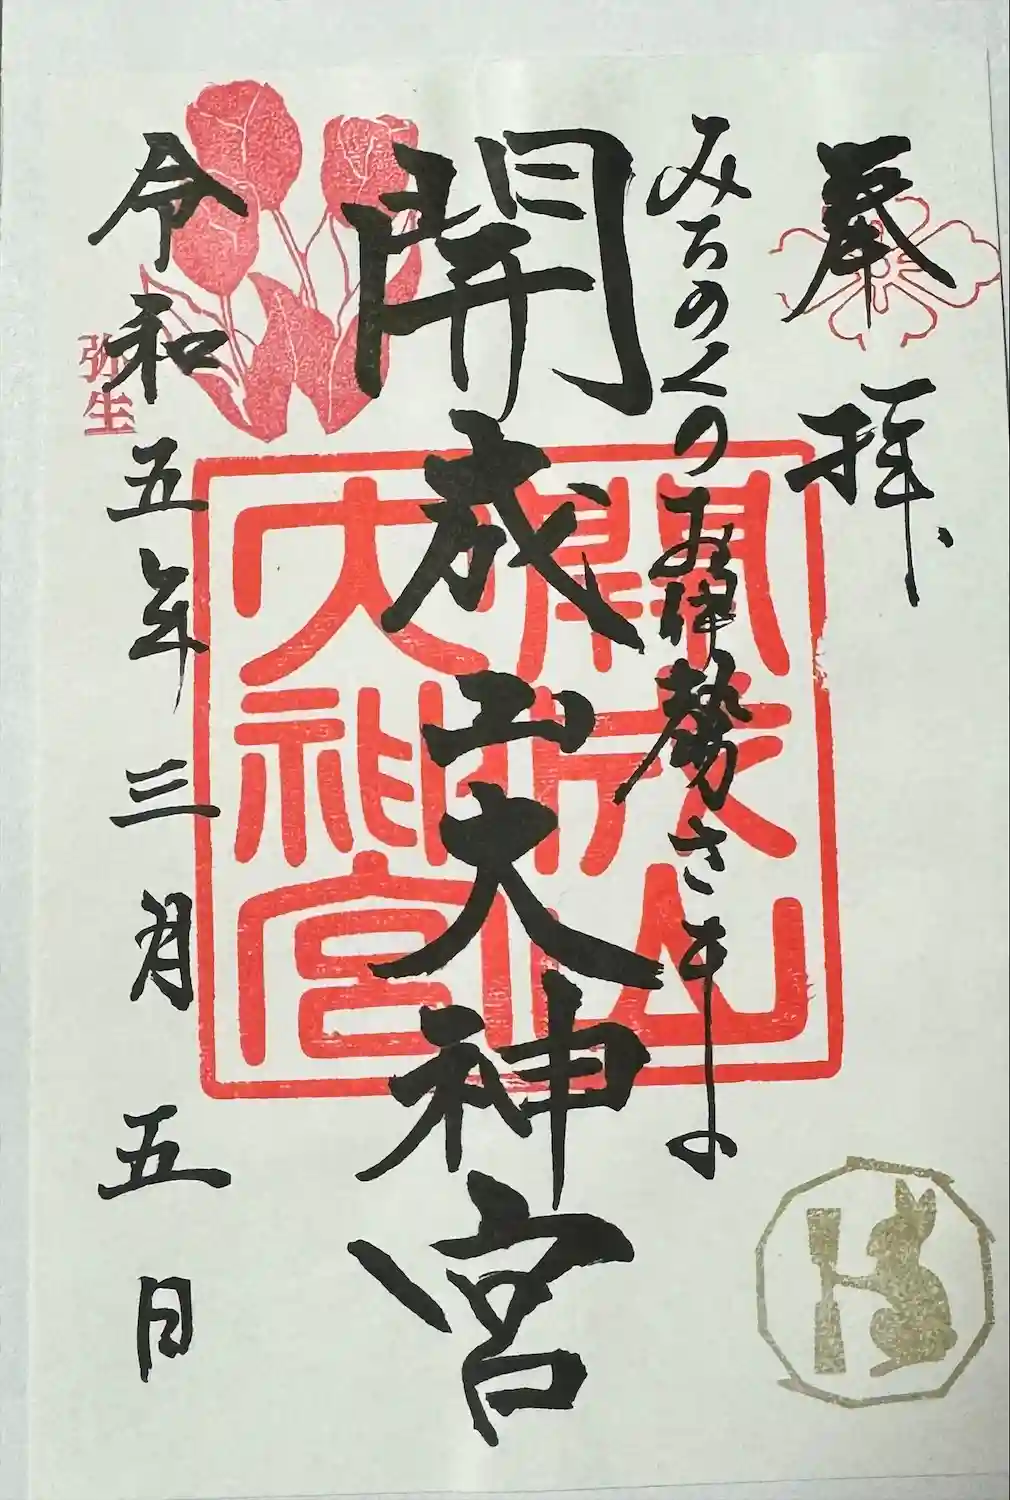 奉拝
みちのくのお伊勢さまの
開成山大神宮
開成山
大神宮
令和五年三月五日
弥生